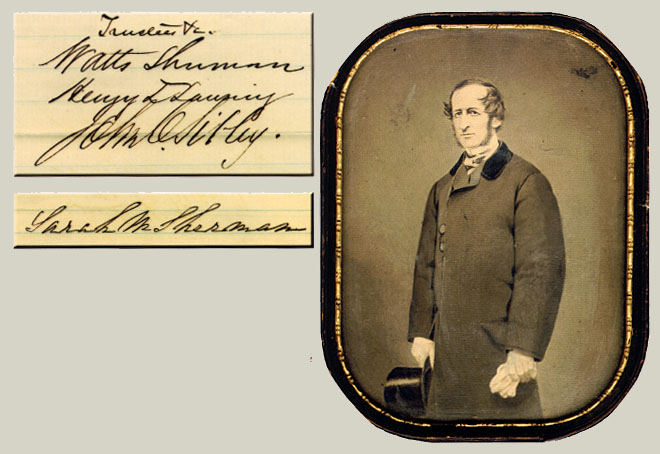 Trustees &c.
Watts Sherman
Henry L Lansing
John Sibley.
Sarah M Sherman